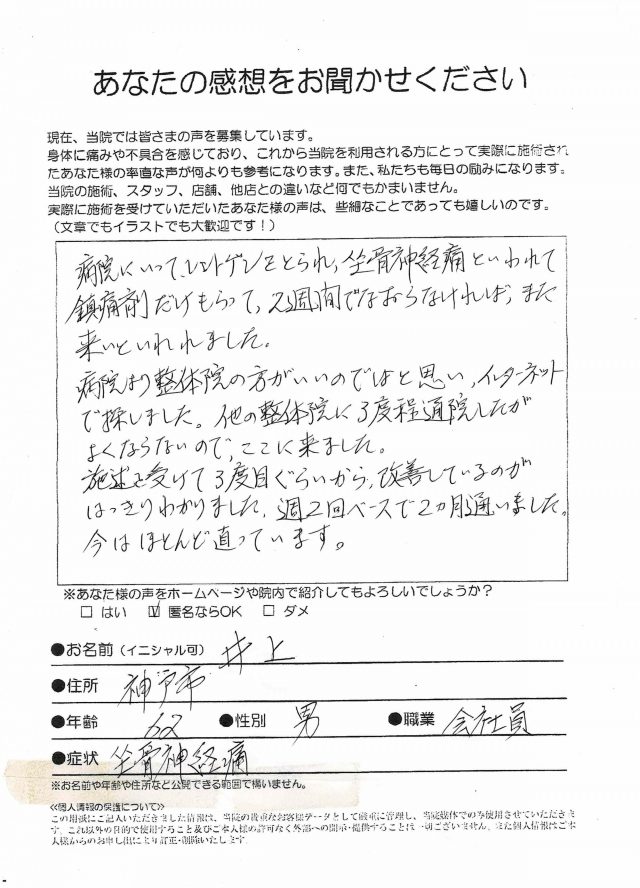 あなたの感想をお聞かせください
現在、当院では皆さまの声を募集しています。
身体に痛みや不具合を感じており、これから当院を利用される方にとって実際に施術され
たあなた様の率直な声が何よりも参考になります。また、私たちも毎日の励みになります。
当院の施術、スタッフ、店舗、他店との違いなど何でもかまいません。
実際に施術を受けていただいたあなた様の声は、些細なことであっても嬉しいのです。
(文章でもイラストでも大歓迎です!)
病院にいって、レントゲンをとられ、坐骨神経痛といわれて
鎮痛剤だけもらって、2週間でなおらなければ、また
来いといれれました。
病院より整体院の方がいいのではと思い、インターネット
で探しました。他の整体院に3度程通院したが
よくならないので、ここに来ました。
施述を受けて3度目ぐらいから、改善しているのが
はっきりわかりました。週2回ペースで2ヵ月通いました。
今はほとんど直っています。
※あなた様の声をホームページや院内で紹介してもよろしいでしょうか?
□ はい ☑ 匿名ならOK □ ダメ
●お名前(イニシャル可) 井上
●住所 神戸市
●年齢 62 ●性別 男 ●職業 会社員
●症状 坐骨神経痛
※お名前や年齢や住所など公開できる範囲で構いません。
≪個人情報の保護について≫
この用紙にご記入いただきました情報は、当院の貴重なお客様データとして厳重に管理し、当院媒体でのみ使用させていただきま
す。これ以外の目的で使用すること及びご本人様の許可なく外部への開示・提供することは一切ございません。また個人情報はご本
人様からのお申し出により訂正・削除いたします。